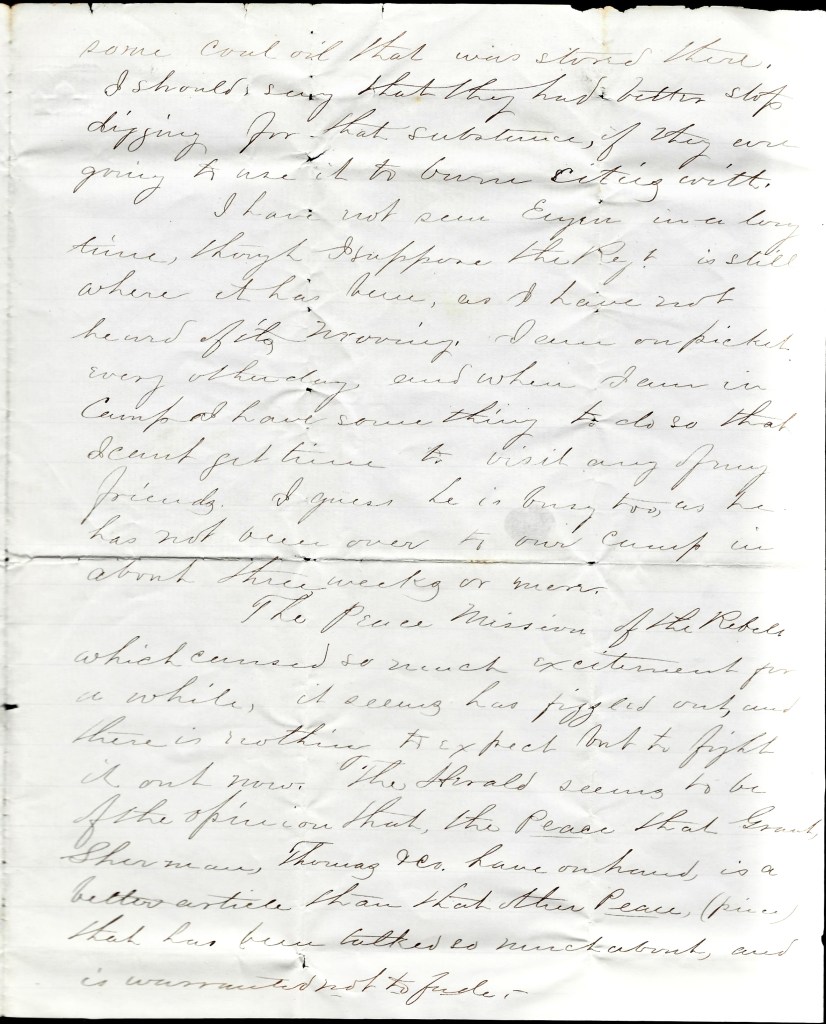 some coal oil that was stored there.
I should say that they had better stop
digging for that substance, if they are
going to use it to burn cities with.
I have not seen Eugin in a long
time, though I suppose the Regt. is still
where it has been, as I have not
heard of its moving. I am on picket
every other day, and when I am in
Camp I have something to do so that
I cant get time to visit any of my
friends. I guess he is busy too, as he
has not been over to our Camp in
about three weeks or more.
The Peace Mission of the Rebels
which caused so much excitement for
a while, it seems has fizzled out, and
there is nothing to expect but to fight
it out now. The Herald seems to be
of the opinion that, the Peace that Grant,
Sherman, Thomas &co. have on hand, is a
better article than that other Peace, (piece)
that has been talked so much about, and
is warranted not to fade.-